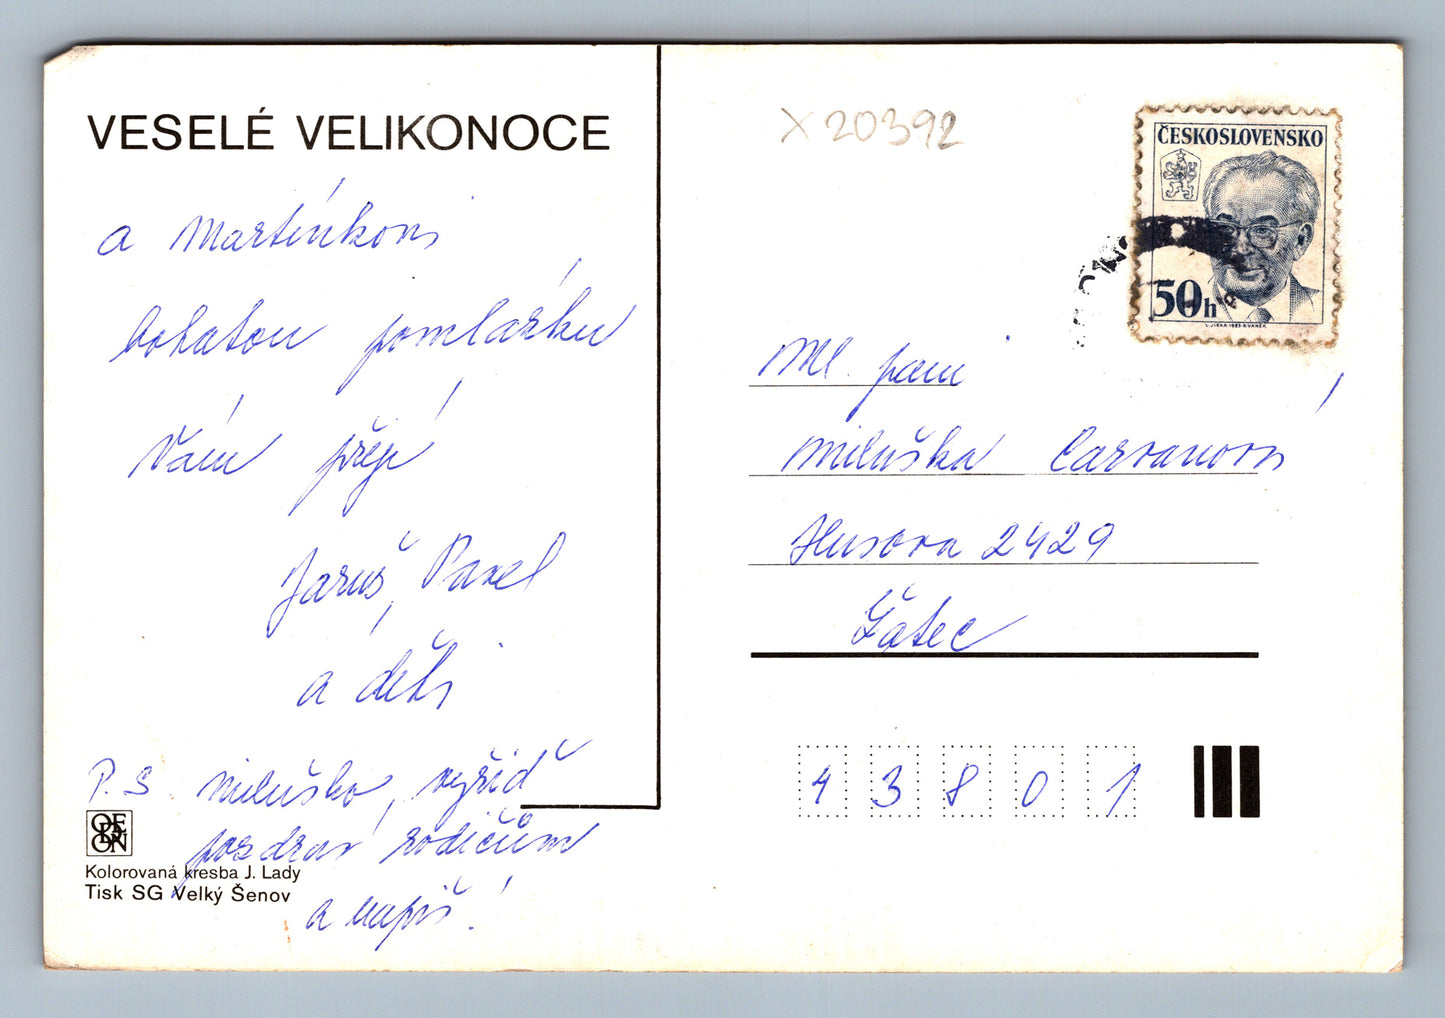 VESELÉ VELIKONOCE
a Martínkovi
bohatou pomlázku
Vám přejí
Jaruš, Pavel
a děti
P.S. Miluško, vyřiď
pozdrav rodičům
a napiš!
ODEON
Kolorovaná kresba J. Lady
Tisk SG Velký Šenov
X 20392
ČESKOSLOVENSKO
50h
Ml. paní
Miluška
Husova 2429
Žatec
43801